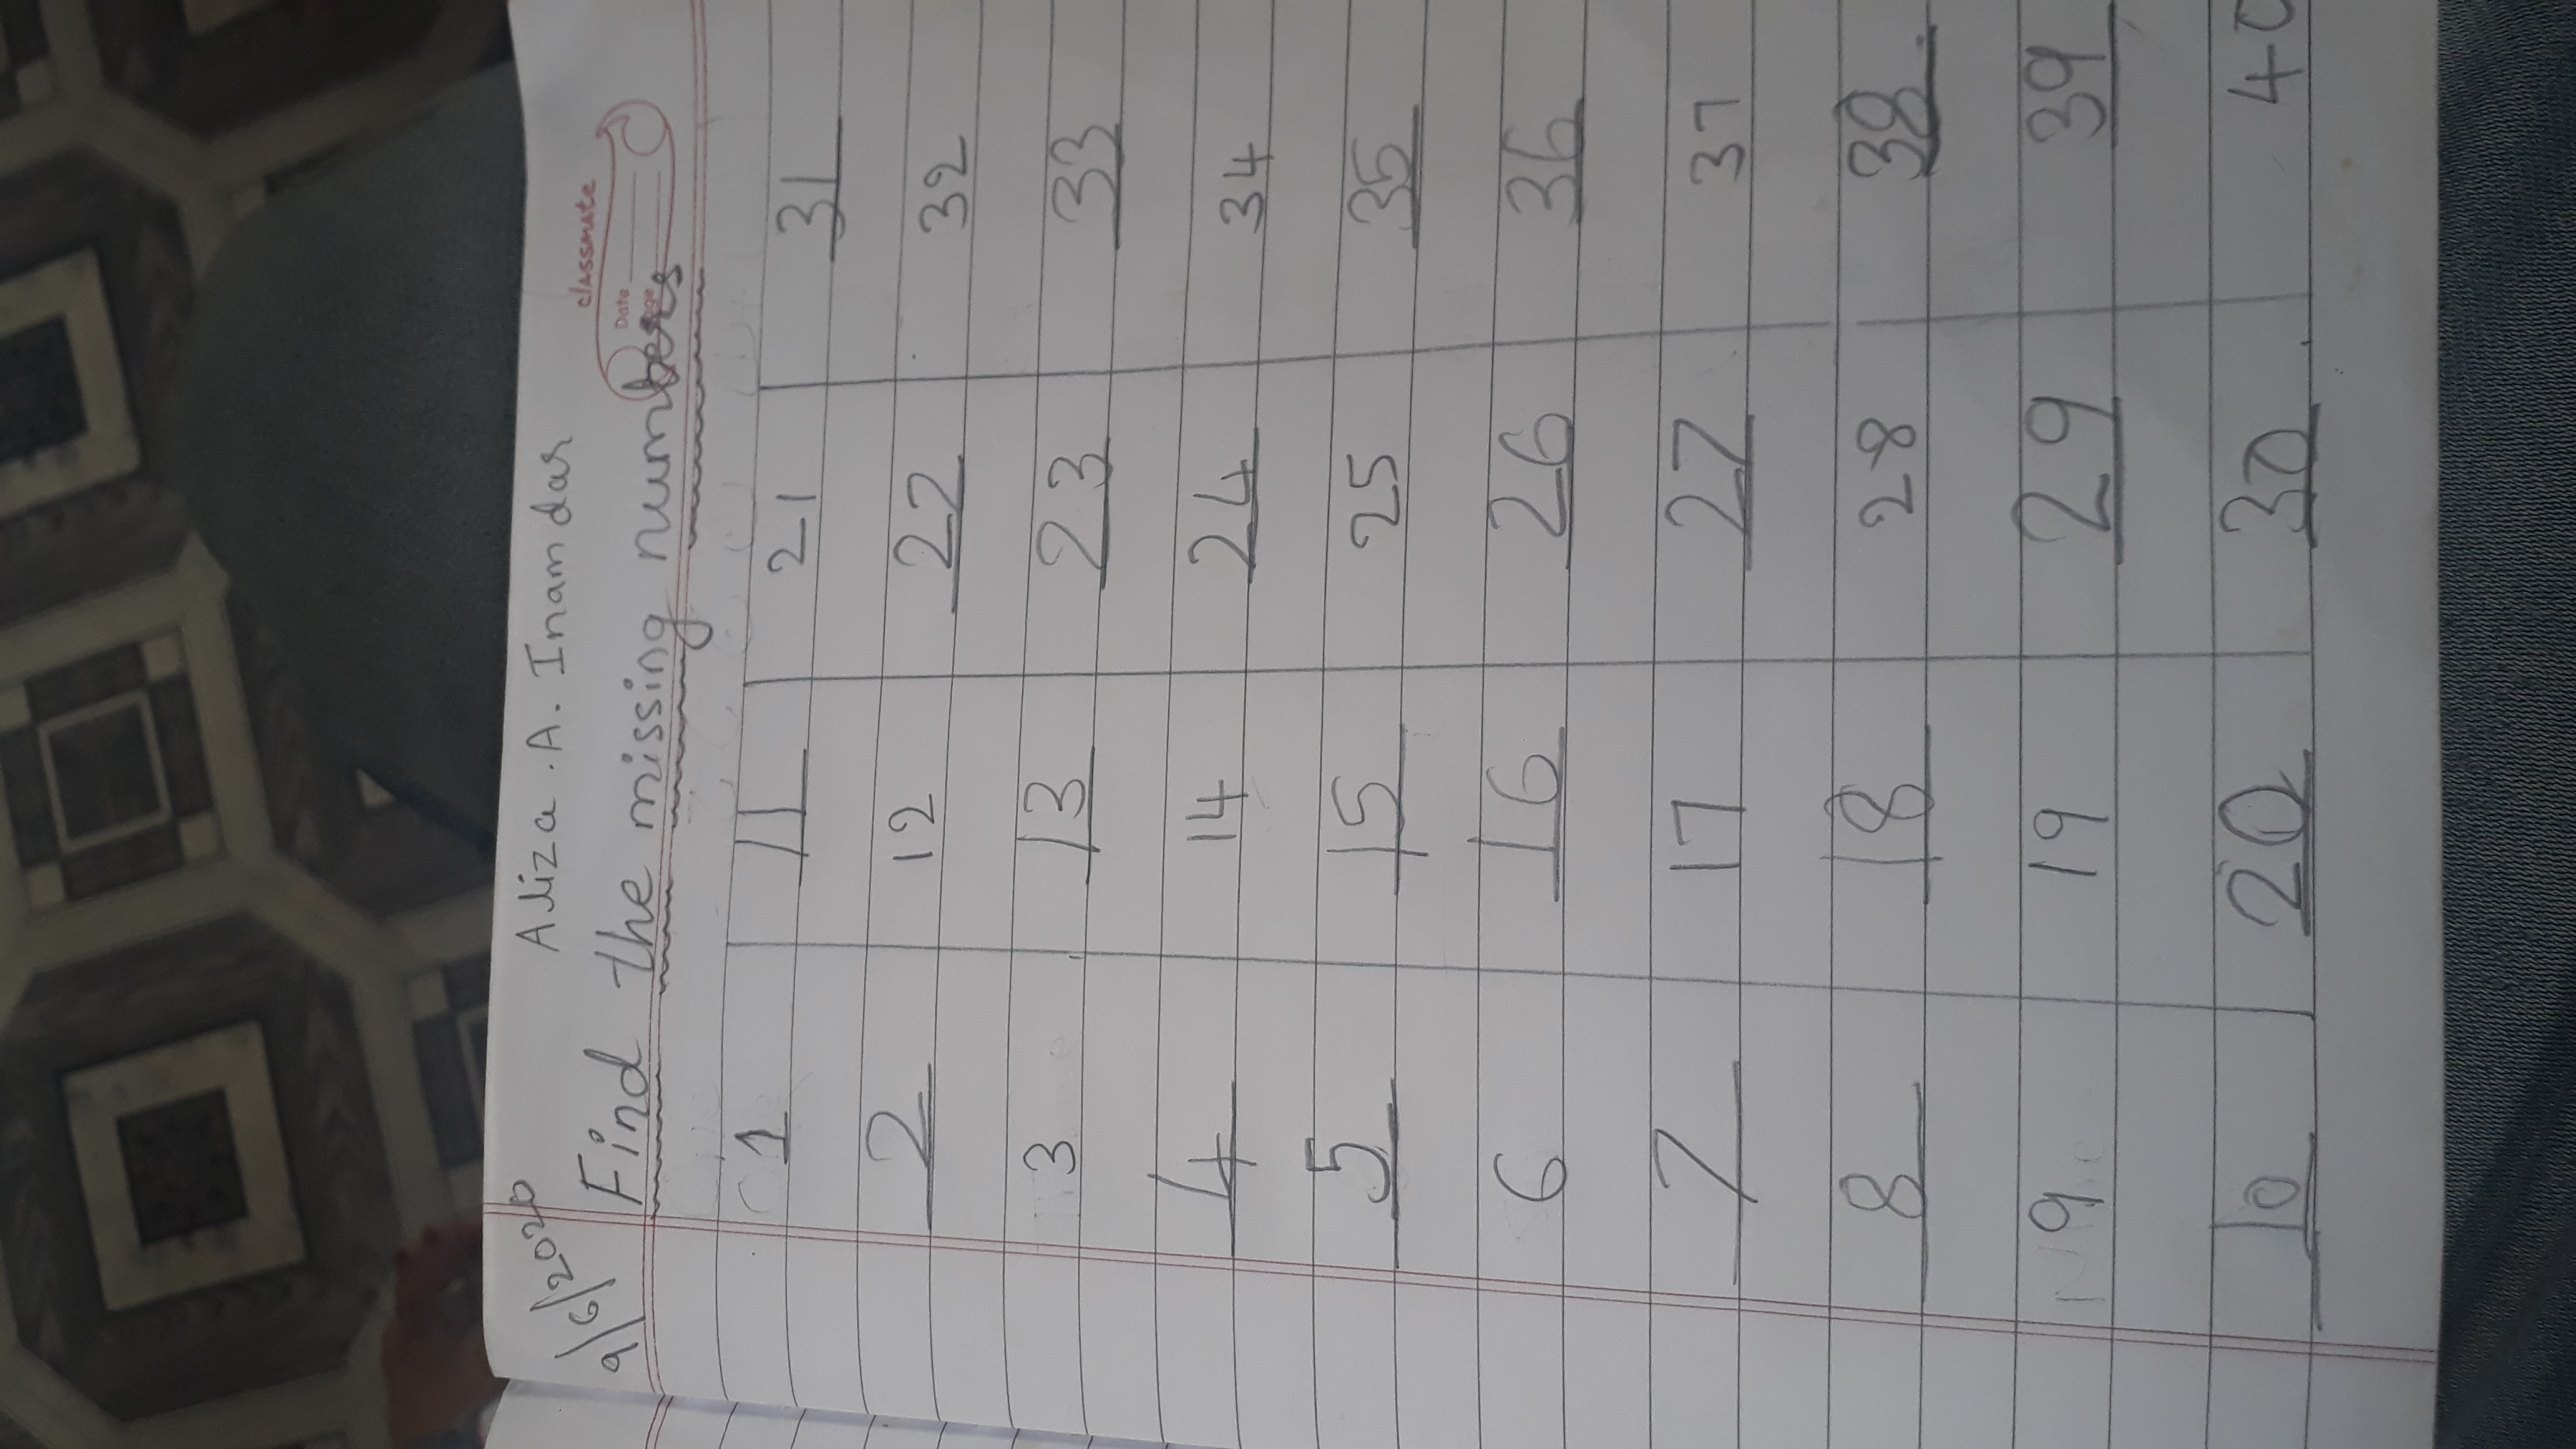 classmate
Date
Page
9/6/2020 Aliza .A. Inamdar
Find the missing numbers
1 11 21 31
2 12 22 32
3 13 23 33
4 14 24 34
5 15 25 35
6 16 26 36
7 17 27 37
8 18 28 38
9 19 29 39
10 20 30 40